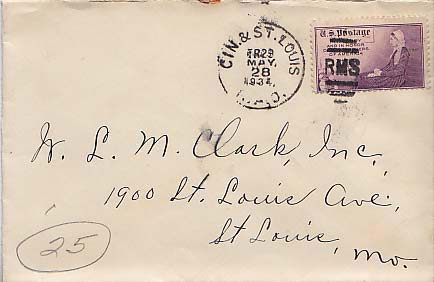 U.S. Postage
AND IN HONOR
OF AMERICA
RMS
CIN & ST. LOUIS
TR29
MAY
28
1934
R.P.O.
W. L. M. Clark, Inc.,
1900 St. Louis Ave.,
St Louis,
Mo.
25